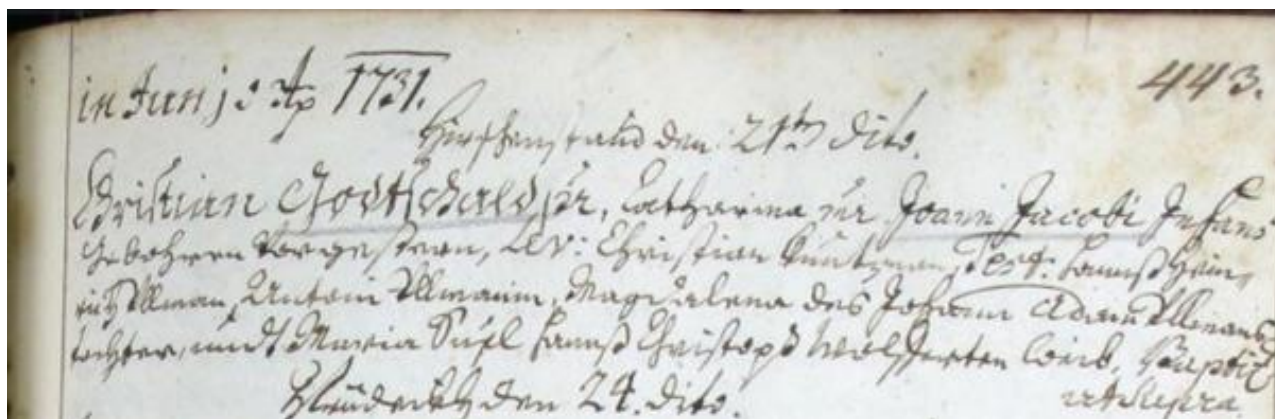 in Junj: Ao 1731. 443.
Hirschenstand den 21th dito.
Christian Gottschaldt, ur, Catharina ux Joann Jacobi Infans
Gebohren vorgestern, Lev: Christian Kuntzman, Test: Hannß Hein,
rich Ullman, Antoni Ullmann, Magdalena des Johann Adam Ullmans
tochter, undt Maria Hannß Christoph weib, Baptiz
ut supra
den 24. dito.